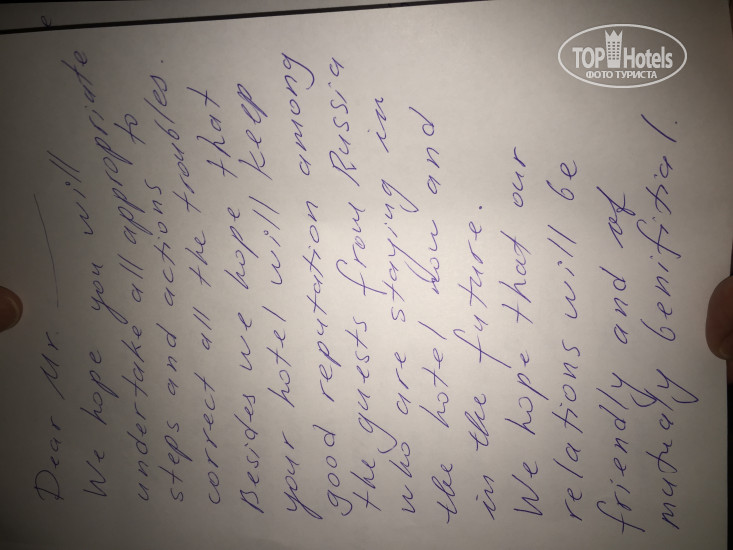 Dear Mr.
We hope you will
undertake all appropriate
steps and actions to
correct all the troubles.
Besides we hope that
your hotel will keep
good reputation among
the guests from Russia
who are staying in
the hotel now and
in the future.
We hope that our
relations will be
friendly and of
mutualy benifitial.
TOP Hotels
ФОТО ТУРИСТА